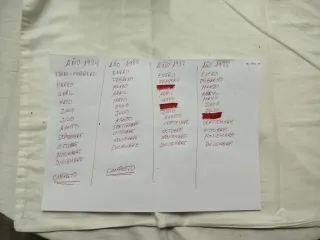 AÑO
ENERO-FEBRERO
MARZO
ABRIL
MAYO
JUNIO
JULIO
AGOSTO
SEPTIEMBRE
OCTUBRE
NOVIEMBRE
DICIEMBRE
COMPLETO
AÑO
ENERO
FEBRERO
MARZO
ABRIL
MAYO
JUNIO
JULIO
AGOSTO
SEPTIEMBRE
OCTUBRE
NOVIEMBRE
DICIEMBRE
COMPLETO
AÑO
ENERO
FEBRERO
ABRIL
MAYO
JULIO
AGOSTO
SEPTIEMBRE
OCTUBRE
NOVIEMBRE
DICIEMBRE
AÑO
ENERO
FEBRERO
MARZO
ABRIL
MAYO
JUNIO
JULIO
SEPTIEMBRE
OCTUBRE
NOVIEMBRE
DICIEMBRE